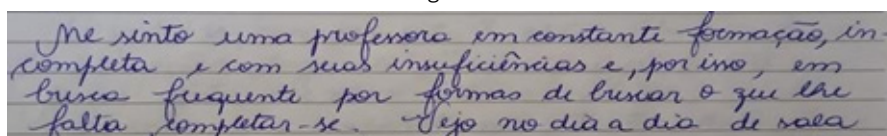 Me sinto uma professora em constante formação, in-
completa e com suas insuficiências e, por isso, em
busca frequente por formas de buscar o que lhe
falta completar-se. Vejo no dia a dia de sala